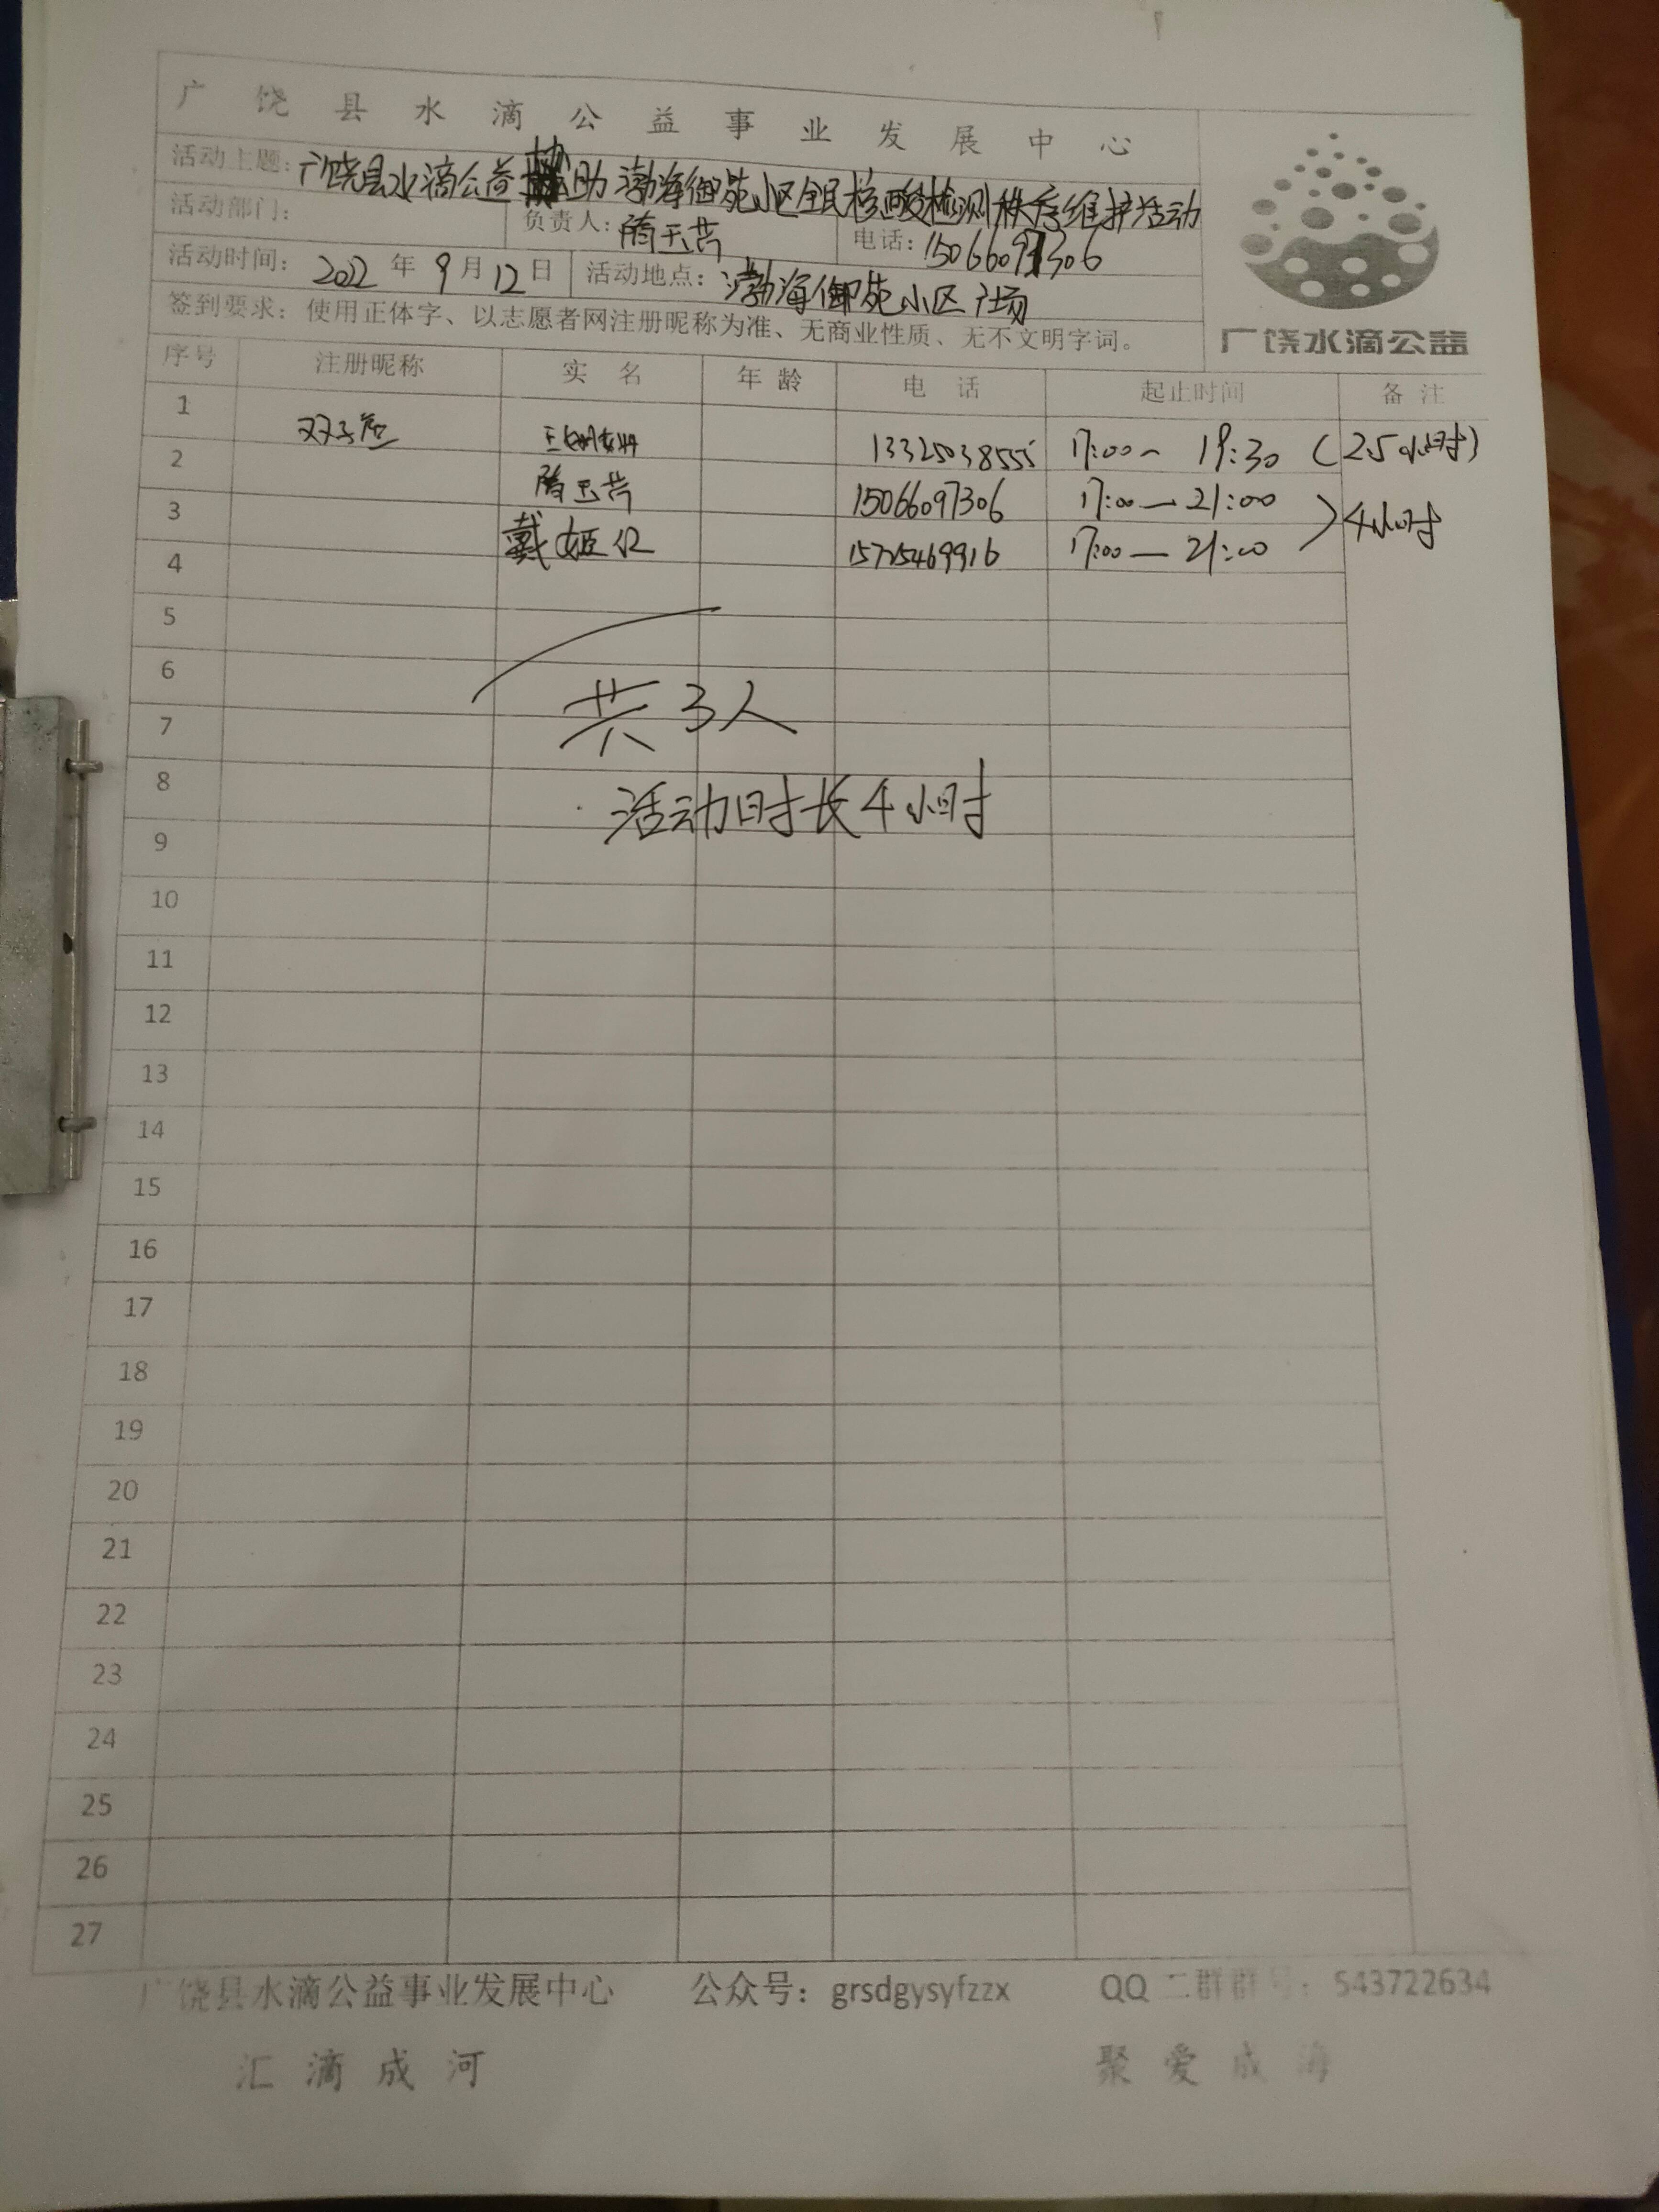 广饶县水滴公益事业发展中心
活动主题：广饶县水滴公益协助渤海御苑小区全民核酸检测秩序维护活动
活动部门： 负责人：隋玉芹 电话：15066097306
活动时间：2022年9月12日 活动地点：渤海御苑小区广场
签到要求：使用正体字、以志愿者网注册昵称为准、无商业性质、无不文明字词。
广饶水滴公益
序号 注册昵称 实名 年龄 电话 起止时间 备注
1 双子座 13325038555 17:00~19:30 (2.5小时)
2 隋玉芹 15066097306 17:00—21:00
3 戴姬 15725469916 17:00—21:00 4小时
4
5
6
共3人
7
8
活动时长4小时
9
10
11
12
13
14
15
16
17
18
19
20
21
22
23
24
25
26
27
广饶县水滴公益事业发展中心 公众号：grsdgysyfzzx QQ二群群号：543722634
汇滴成河 聚爱成海